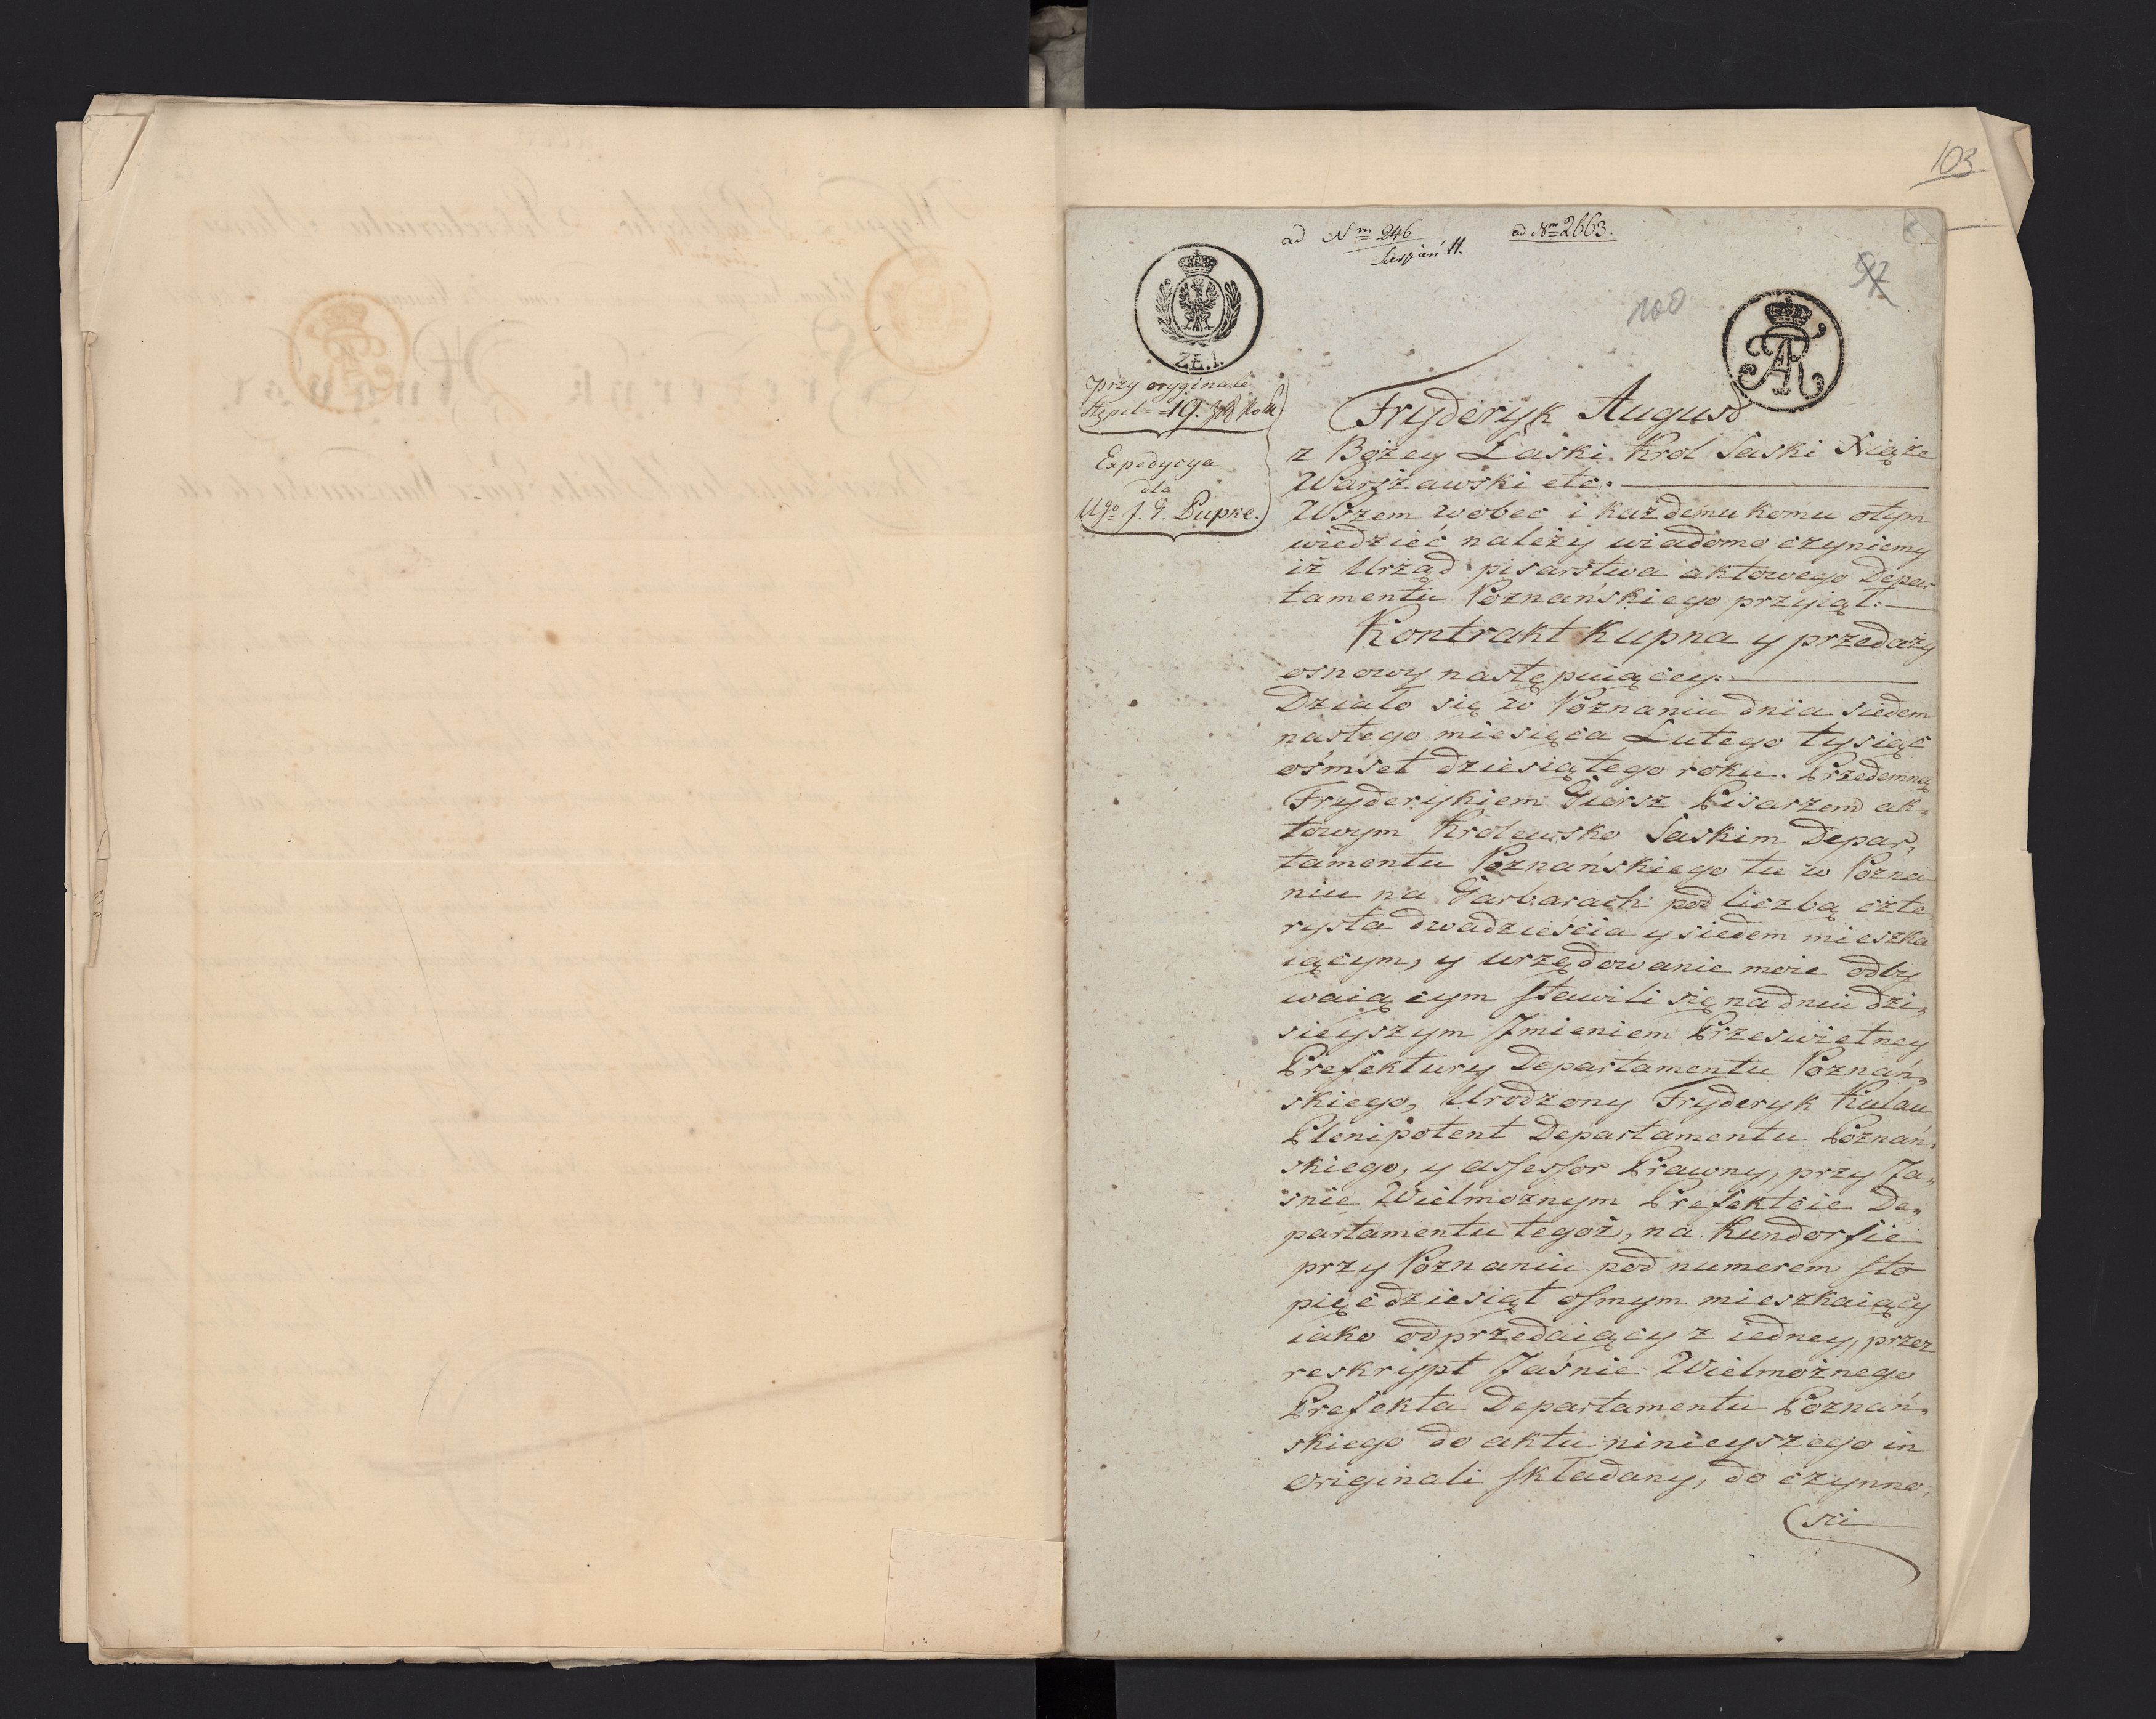 103
ad Nm 246
Sierpień 11.
ad Nm 2663.
97
100
ZŁ.1.
FAR
przy oryginale
Stępel 19.
Expedycya
dla
Ugo J. G. Pupke.
Fryderyk August
z Bożey Łaski Krol Saski Xiąże
Warszawski etc.
Wszem wobec i każdemu komu otym
wiedzieć należy wiadomo czyniemy
iż Urząd pisarstwa aktowego Depar
tamentu Poznańskiego przyiął:
Kontrakt Kupna y przedaży
osnowy następuiącey:
Działo się w Poznaniu dnia siedem
nastego miesięca Lutego tysiąc
ośmset dziesiątego roku. Przedemną
Fryderykiem Giersz Pisarzem ak,
towym Krolewsko Saskim Depar,
tamentu Poznańskiego tu w Pozna
niu na Garbarach pod liczbą czte
rysta dwadzieścia y siedem mieszka
iącym, y urzędowanie moie odby
waiącym stawili się na dniu dzi,
sieyszym Jmieniem Przeswietney
Prefektury Departamentu Poznań,
skiego, Urodzony Fryderyk Kulau
Plenipotent Departamentu Poznań,
skiego, y assessor Prawny, przy Ja,
snie Wielmożnym Prefekcie De,
partamentu tegoż, na Kundorfie
przy Poznaniu pod numerem sto
pięćdziesiąt osmym mieszkaiący
iako odprzedaiący z iedney, przez
reskrypt Jaśnie Wielmożnego
Prefekta Departamentu Poznań,
skiego do aktu ninieyszego in
originali składany, do czynno,
sci